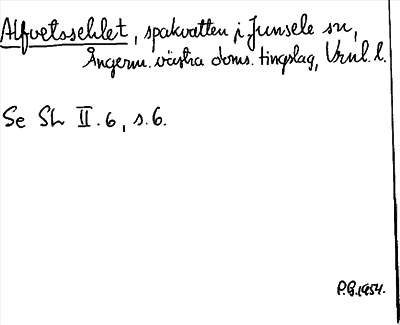 Alfvetsselet, spakvatten i Junsele sn,
Ångerm. västra doms. tingslag, Vrnl. l.
Se SL II.6, s.6.
P.B.1954.